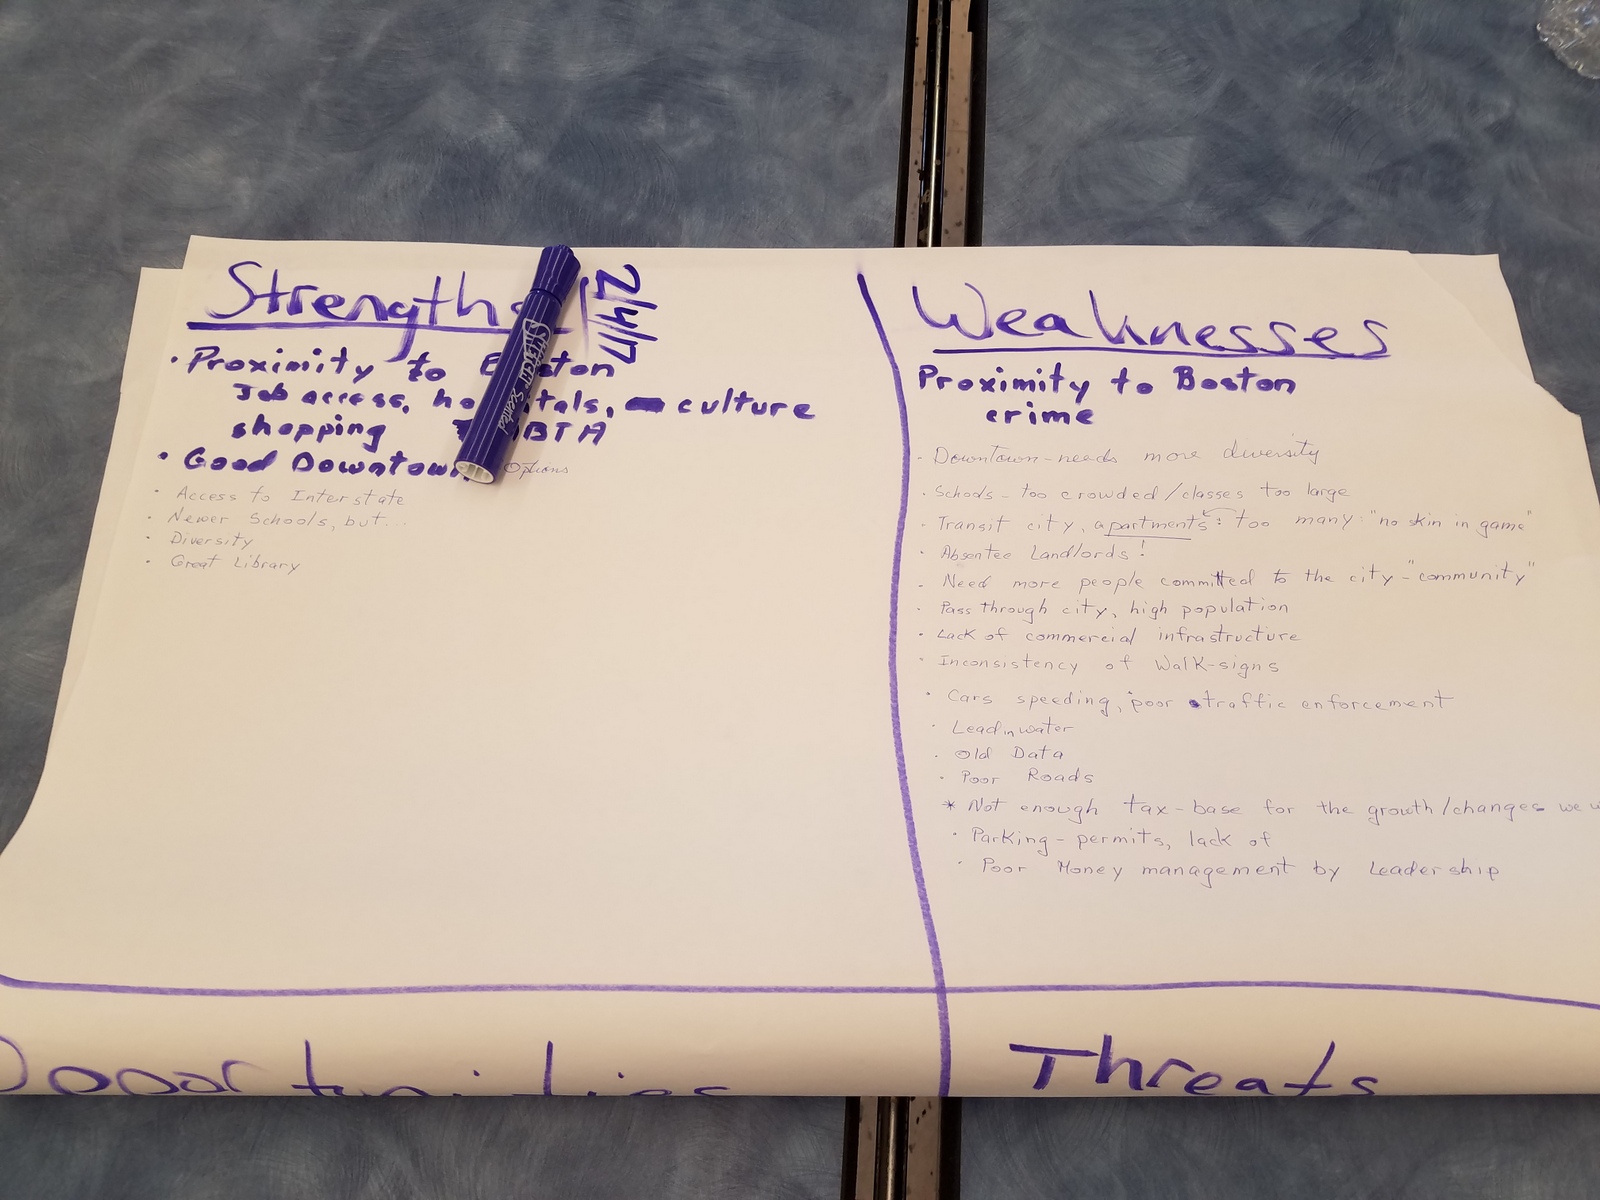 Strengths
2/4/17
• Proximity to Boston
Job access, hospitals, culture
shopping MBTA
• Good Downtown Options
• Access to Interstate
• Newer Schools, but...
• Diversity
• Great Library
Weaknesses
Proximity to Boston
crime
- Downtown - needs more diversity
• Schools - too crowded/classes too large
• Transit city, apartments: too many: "no skin in game"
• Absentee Landlords!
• Need more people committed to the city - "community"
• Pass through city, high population
• Lack of commercial infrastructure
• Inconsistency of Walk-signs
• Cars speeding, poor traffic enforcement
• Lead in water
• Old Data
• Poor Roads
* Not enough tax-base for the growth/changes we
• Parking - permits, lack of
• Poor Money management by Leadership
Opportunities
Threats
SKETCH Scented